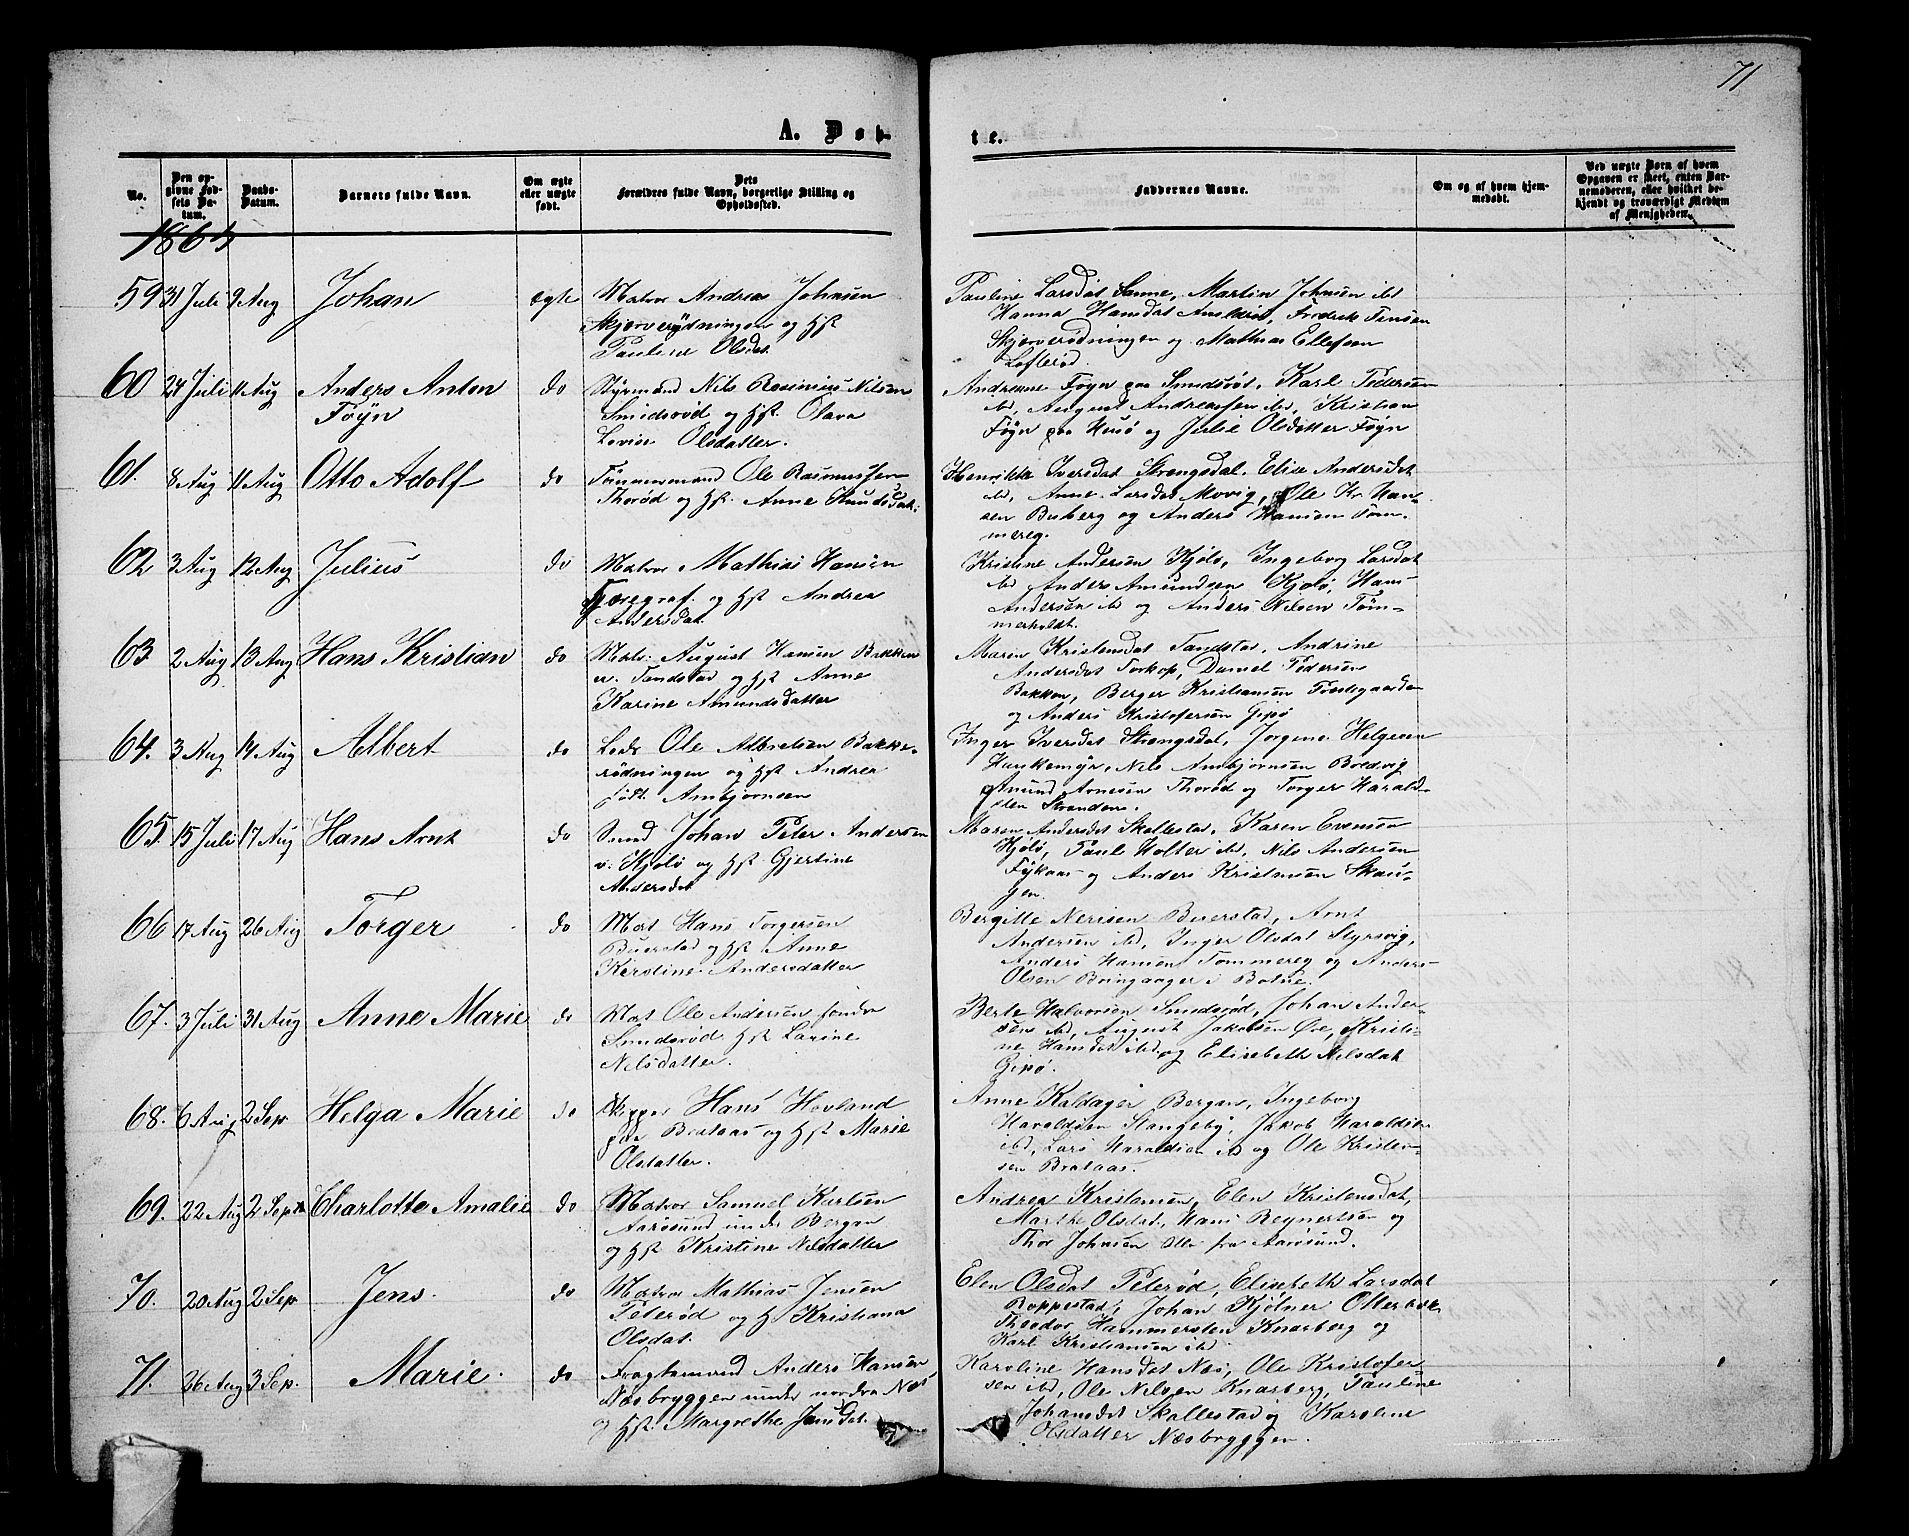 71
A. Døb-
te.
No.
Den op-
givne Fød-
sels Da-
tum.
Daabs-
Datum.
Barnets fulde Navn.
Om ægte
eller uægte
født.
Dets
Forældres fulde Navn, borgerlige Stilling og
Opholdssted.
Faddernes Navne.
Om og af hvem hjem-
medøbt.
Ved uægte Børn af hvem
Opgaven er skeet, enten Bar-
nemoderen, eller hvilket be-
kjendt og troværdigt Medlem
af Menigheden.
59 31 Juli 9 Aug Johan ægte Matros Andreas Johnsen
Skjærverødningen og Hst
Pauline Olsdat.
Pauline Larsdat Sanne, Martin Johnsen ibd
Hanna Hansdat, Fredrik Jensen
Skjærverødningen og Mathias Ellefsen
Lofterød.
60 24 Juli 11 Aug Anders Anton
Føyn do Styrmand Nils Rasmus Nilsen
Smidsrød og Hst. Olava
Lovise Olsdatter.
Andreane Føyn paa Smidsrød, Karl Pedersen
ibd, August Andreassen ibd, Kristian
Føyn paa Husø og Julie Olsdatter Føyn
61. 8 Aug 11 Aug Otto Adolf do Tømmermand Ole Rasmussen
Thorød og Hst. Anne Knudsdat.
Henrikke Iversdat Strengsdal, Elise Andersdat
ibd, Anne Larsdat Movig, Ole Kr. Han-
sen Buberg og Anders Hansen Tøm-
mereg.
62 3 Aug 12 Aug Julius do Matros Mathias Hansen
og Hst Andrea
Andersdat.
Kristine Andersen Kjølø, Ingeborg Larsdat
ibd Anders Amundsen Kjølø, Hans
Andersen ibd og Anders Nilsen Tøm-
merholdt.
63. 2 Aug 13 Aug Hans Kristian do Matr. August Hansen Bakken
u. Tandstad og Hst Anne
Karine Amundsdatter
Maren Kristensdat Tandstad, Andrine
Andersdat Torkop, Daniel Pedersen
Bakken, Berger Kristiansen
og Anders Kristofersen Gipø
64. 3 Aug 14 Aug Albert do Lods Ole Albretsen Bakke-
rødningen og Hst Andrea
født Ambjørnsen
Inger Iversdat Strengsdal, Jørgene Helgesen
Haukemyr, Nils Ambjørnsen Bredvig
Amund Arnesen Thorød og Torger Harald-
sen Stranden.
65. 15 Juli 17 Aug Hans Arnt do Smed Johan Peter Andersen
v. Kjølø og Hst Gjertine
Andersdat
Maren Andersdat Skallestad, Karen Evensen
Kjølø, Paul Holter ibd, Nils Andersen
Fykaas og Anders Kristiansen Skau-
gen.
66 17 Aug 26 Aug Torger do Mat Hans Torgersen
Buerstad og Hst Anne
Karoline Andersdatter
Bergitte Nerisen Buerstad, Arnt
Andersen ibd, Inger Olsdat Styrsvig,
Anders Hansen Tommereg og Anders
Olsen Bringaager i Botne.
67. 3 Juli 31 Aug Anne Marie do Mat Ole Andersen søndre
Smidsrød Hst Larine
Nilsdatter.
Berte Halvorsen Smidsrød, Johan Ander-
sen ibd, August Jakobsen Øre, Kristi-
ne Hansdat ibd og Elisebeth Nilsdat
Gipø.
68. 6 Aug 2 Sep Helga Marie do Skipper Hans Hovland
paa Brataas og Hst Marie
Olsdatter.
Anne Kaldager Bergan, Ingeborg
Haraldsen Stangeby, Jakob Haraldsen
ibd, Lars Haraldsen ibd og Ole Kristen-
sen Brataas.
69. 22 Aug 2 Sept. Charlotte Amalie do Matros Samuel Karlsen
Aarøsund under Bergan
og Hst Kristine Nilsdatter
Andrea Kristensen, Elen Kristensdat,
Marthe Olsdat, Hans Reynertsen og
Thor Johnsen alle fra Aarøsund.
70. 20 Aug 2 Sep Jens. do Matros Mathias Jensen
Peterød og Hst Kristiana
Olsdat.
Elen Olsdat Peterød, Elisebeth Larsdat
Roppestad, Johan Kjølner Otterbæk
Theodor Hammersten Knarberg og
Karl Kristiansen ibd
71. 26 Aug 3 Sep. Marie. do Fragtemand Anders Hansen
Næsbryggen under nordre Næs
og Hst. Margrethe Jensdat.
Karoline Hansdat Næs, Ole Kristofer-
sen ibd, Ole Nilsen Knarberg, Pauline
Johansdat Skallestad og Karoline
Olsdatter Næsbryggen.